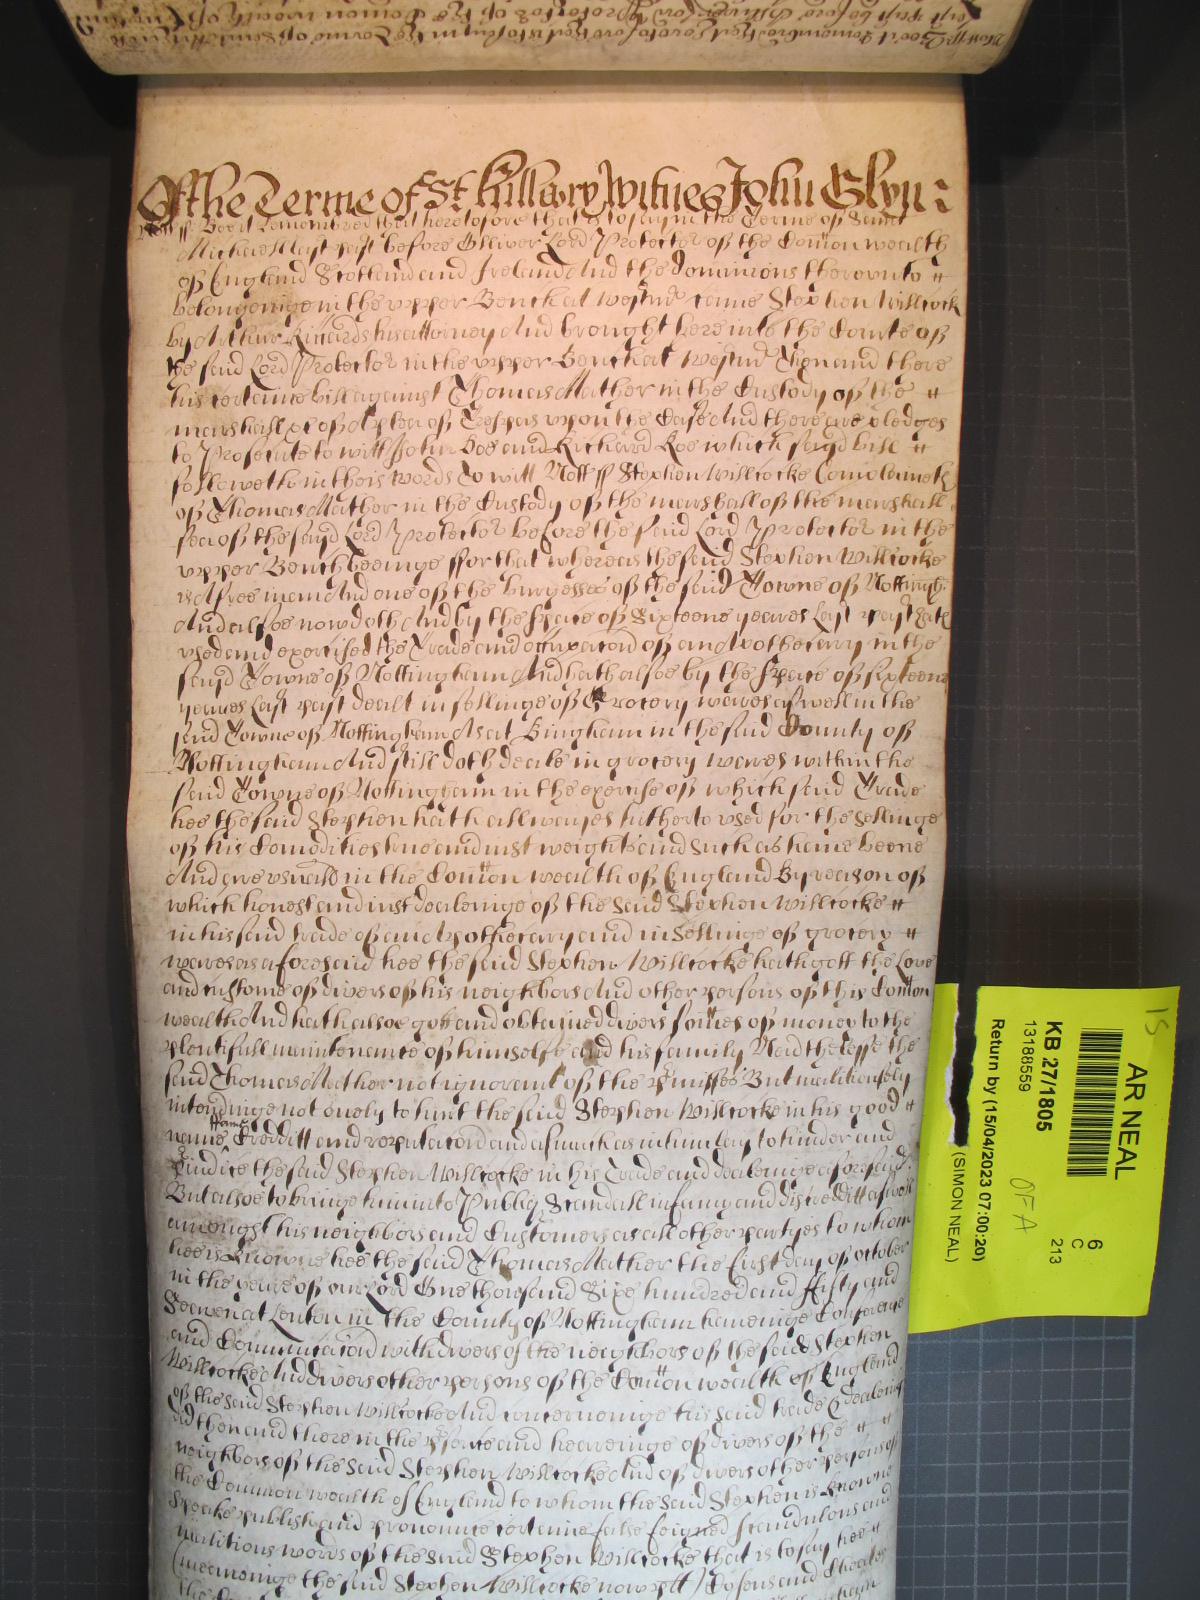 Of the Terme of St. Hillary Witnes John Glyn:
Nott ss Bee it Remembred that heretofore that is to say in the Terme of Saint
Michaell last past before Olliver Lord Protector of the Com̄on wealth
of England Scotland and Ireland And the dominions thereunto
belongeinge in the upper Bench at Westmr came Stephen Willcock
by Arthur Richards his attorney And brought here into the Courte of
the said Lord Protector in the upper Bench at Westmr Then and there
his certaine bill against Thomas Mather in the Custody of the
marshall &c of A plea of Trespas upon the Case And there are pledges
to Prosecute to witt John Doe and Richard Roe which sayd bill
followeth in theis words To witt Nott ss Stephen Willcocke Complaineth
of Thomas Mather in the Custody of the marshall of the marshall
sea of the sayd Lord Protector before the said Lord Protector in the
upper Bench beeinge ffor that whereas the said Stephen Willcocke
is A free man And one of the burgesses of the said Towne of Nottingh:
And alsoe now doth And by the space of Sixteene yeares last past hath
used and exercised the Trade and occupacon of an Apothecary in the
sayd Towne of Nottingham And hath alsoe by the space of sixteene
yeares last past dealt in sellinge of Grocery wares as well in the
said Towne of Nottingham As at Bingham in the said County of
Nottingham And still doth deale in grocery wares within the
said Towne of Nottingham in the exercise of which said Trade
hee the said Stephen hath allwayes hitherto used for the sellinge
of his Comodities true and iust weights and such as have beene
And are usuall in the Com̄on wealth of England By reason of
which honest and iust dealeinge of the said Stephen Willcocke
in his said trade of an Apothecary and in Sellinge of grocery
wares as aforesaid hee the said Stephen Willcocke hath gott the Love
and custome of divers of his neighbors And other persons of this Com̄on
wealth And hath alsoe gott and obtained divers som̄es of money to the
plentifull maintenance of himselfe and his family Neverthelesse the
said Thomas Mather not ignorant of the p'misses But malitiously
intendinge not onely to hurt the said Stephen Willcocke in his good
name ffame Creditt and reputacon and as much as in him lay to hinder and
the said Stephen Willcocke in his Trade and dealeinge aforesaid
But alsoe to bringe him into Publiq Scandall infamy and discreditt aswell
amongst his neighbors and Customers as all other partyes to whom
hee is knowne hee the said Thomas Mather the first day of october
in the yeare of our Lord One thowsand Sixe hundred and ffifty and
Seaven at Lenton in the County of Nottingham haveinge Conference
and Communicacon with divers of the neighbors of the said Stephen
Willcocke And divers other persons of the Com̄on wealth of England
of the said Stephen Willcocke And concerneinge his said trade & dealeing
did then and there in the p'sence and heareinge of divers of the
neighbors of the said Stephen Willcocke And of divers other persons of
the Common wealth of England to whom the said Stephen is knowne
speake publish and pronounce certaine false feigned scandulous and
malitious words of the said Stephen Willcocke that is to say hee
(meaninge the said Stephen Willcocke now plt) Cosens and Cheates
AR NEAL
KB 27/1805
13188559
Return by (15/04/2023 07:00:20)
(SIMON NEAL)
6
C
213
OFA
15